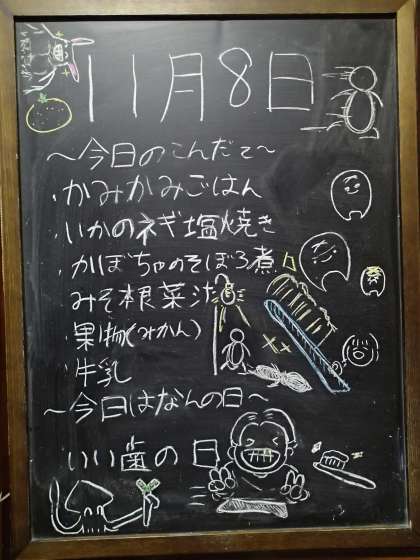 11月8日
～今日のこんだて～
・かみかみごはん
・いかのネギ塩焼き
・かぼちゃのそぼろ煮
・みそ根菜汁
・果物(みかん)
・牛乳
～今日はなんの日～
いい歯の日